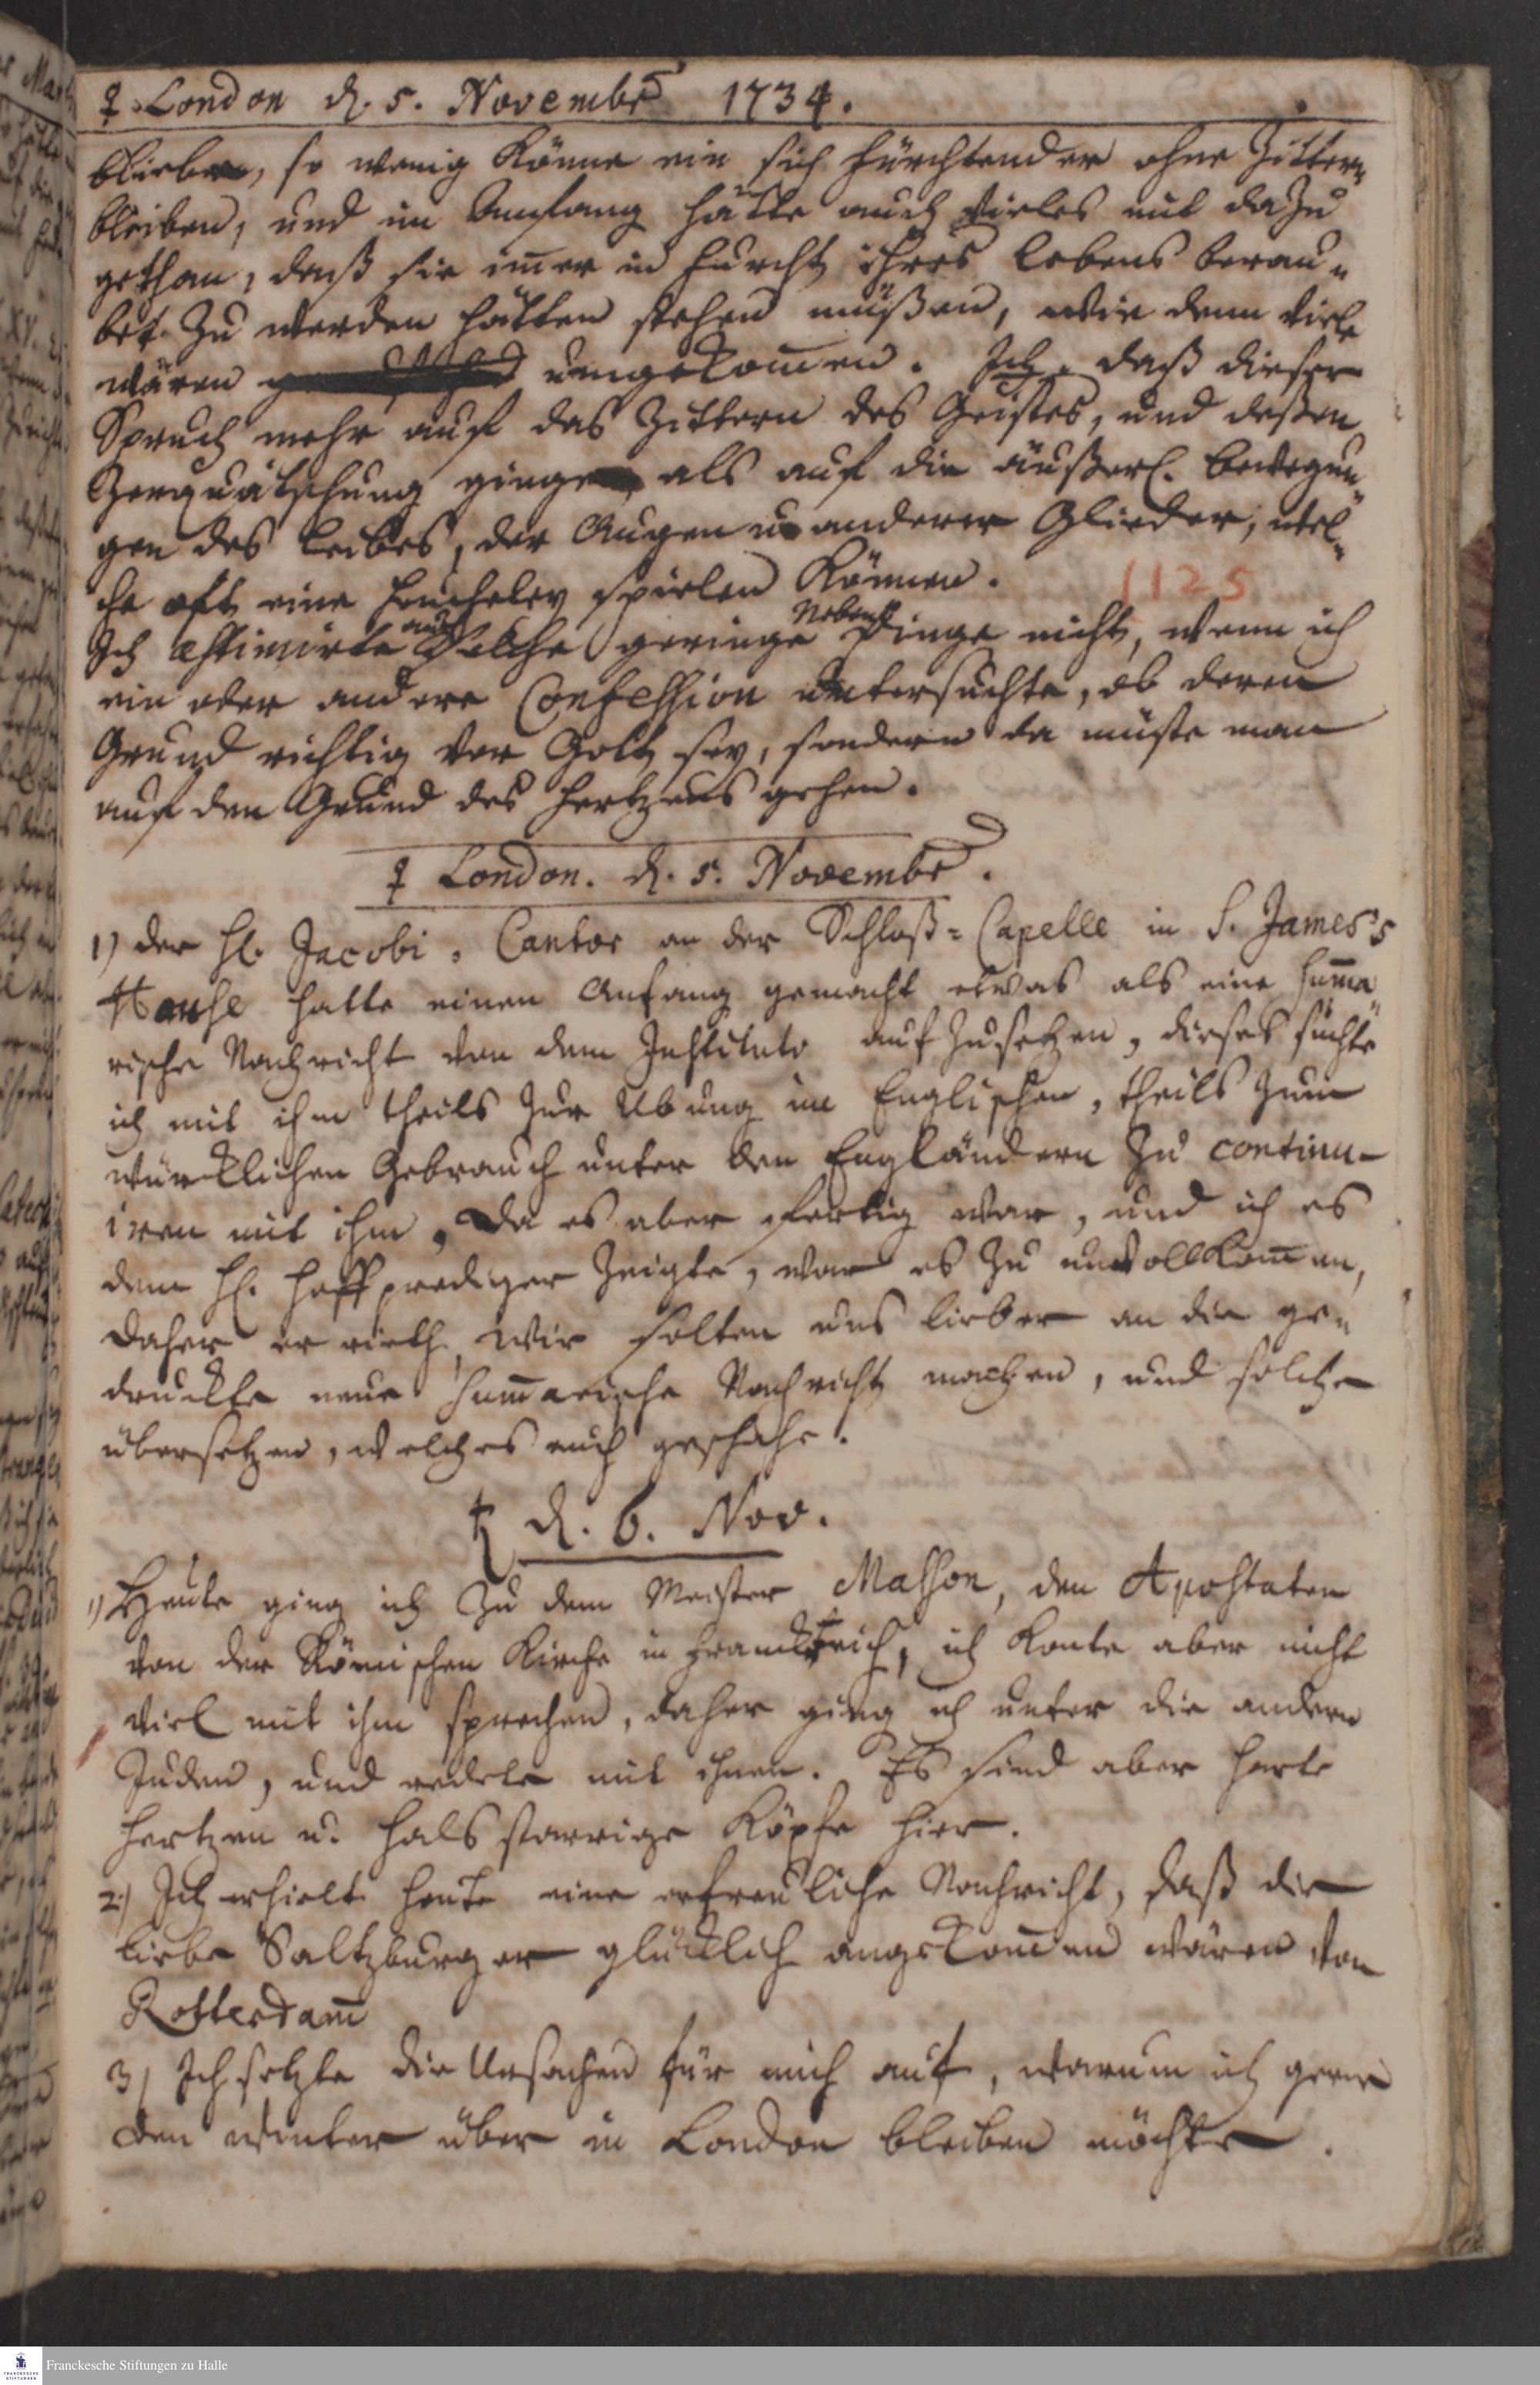 ♀ London d. 5. Novembr 1734.
blieben, so wenig könne ein sich fürchtender ohne Zittern
bleiben, und im Anfang hätte auch vieles mit dazu
gethan, daß sie im̄er in Furcht ihres Lebens berau-
bet zu werden hätten stehen müßen, wie denn viele
wären umgekom̄en. Ich. daß dieser
Spruch mehr auf das Zittern des Geistes, und deßen
Zerquätschung ginge als auf die äußerl. Bewegun-
gen des Leibes, der Augen u. anderer Glieder, wel-
che oft eine Heucheley spielen können.
1125
Ich æstimirte auch solche geringe Neben Dinge nicht, wenn ich
ein oder andere Confession untersuchte, ob deren
Grund richtig vor Gott sey, sondern da müste man
auf den Grund des Hertzens gehen.
♀ London. d. 5. Novembr.
1) der H. Jacobi, Cantor an der Schloß-Capelle in S. James's
House hatte einen Anfang gemacht etwas als eine Sum̄a-
rische Nachricht von dem Instituto aufzusetzen, dieses suchte
ich mit ihm theils zur Ubung im Englischen, theils zum
würcklichen Gebrauch unter den Engländern zu continu-
iren mit ihm, Da es aber fertig war, und ich es
dem H. Hoffprediger zeigte, war es zu unvollkom̄en,
daher er rieth, wir solten uns lieber an die ge-
druckte neue Sum̄arische Nachricht machen, und solche
übersetzen, welches auch geschahe.
♄ d. 6. Nov.
1) Heute ging ich zu dem Meister Masson, den Apostaten
von der Römischen Kirche in Franckreich, ich konte aber nicht
viel mit ihm sprechen, daher ging ich unter die andern
Juden, und redete mit ihnen. Es sind aber harte
Hertzen u. halsstarrige Köpfe hier.
2) Ich erhielt heute eine erfreuliche Nachricht, daß die
liebe Saltzburger glücklich angekom̄en wären von
Rotterdam̄
3) Ich setzte die Ursachen für mich auf, warum ich gerne
den Winter über in London bleiben möchte.
Franckesche Stiftungen zu Halle